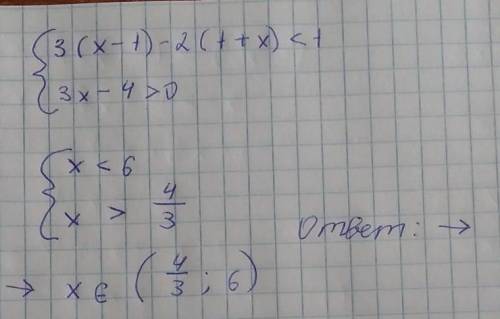 { 3(x-1)-2(1+x)<1
3x-4>0
{ x<6
x > 4/3
Ответ: →
→ x∈(4/3; 6)